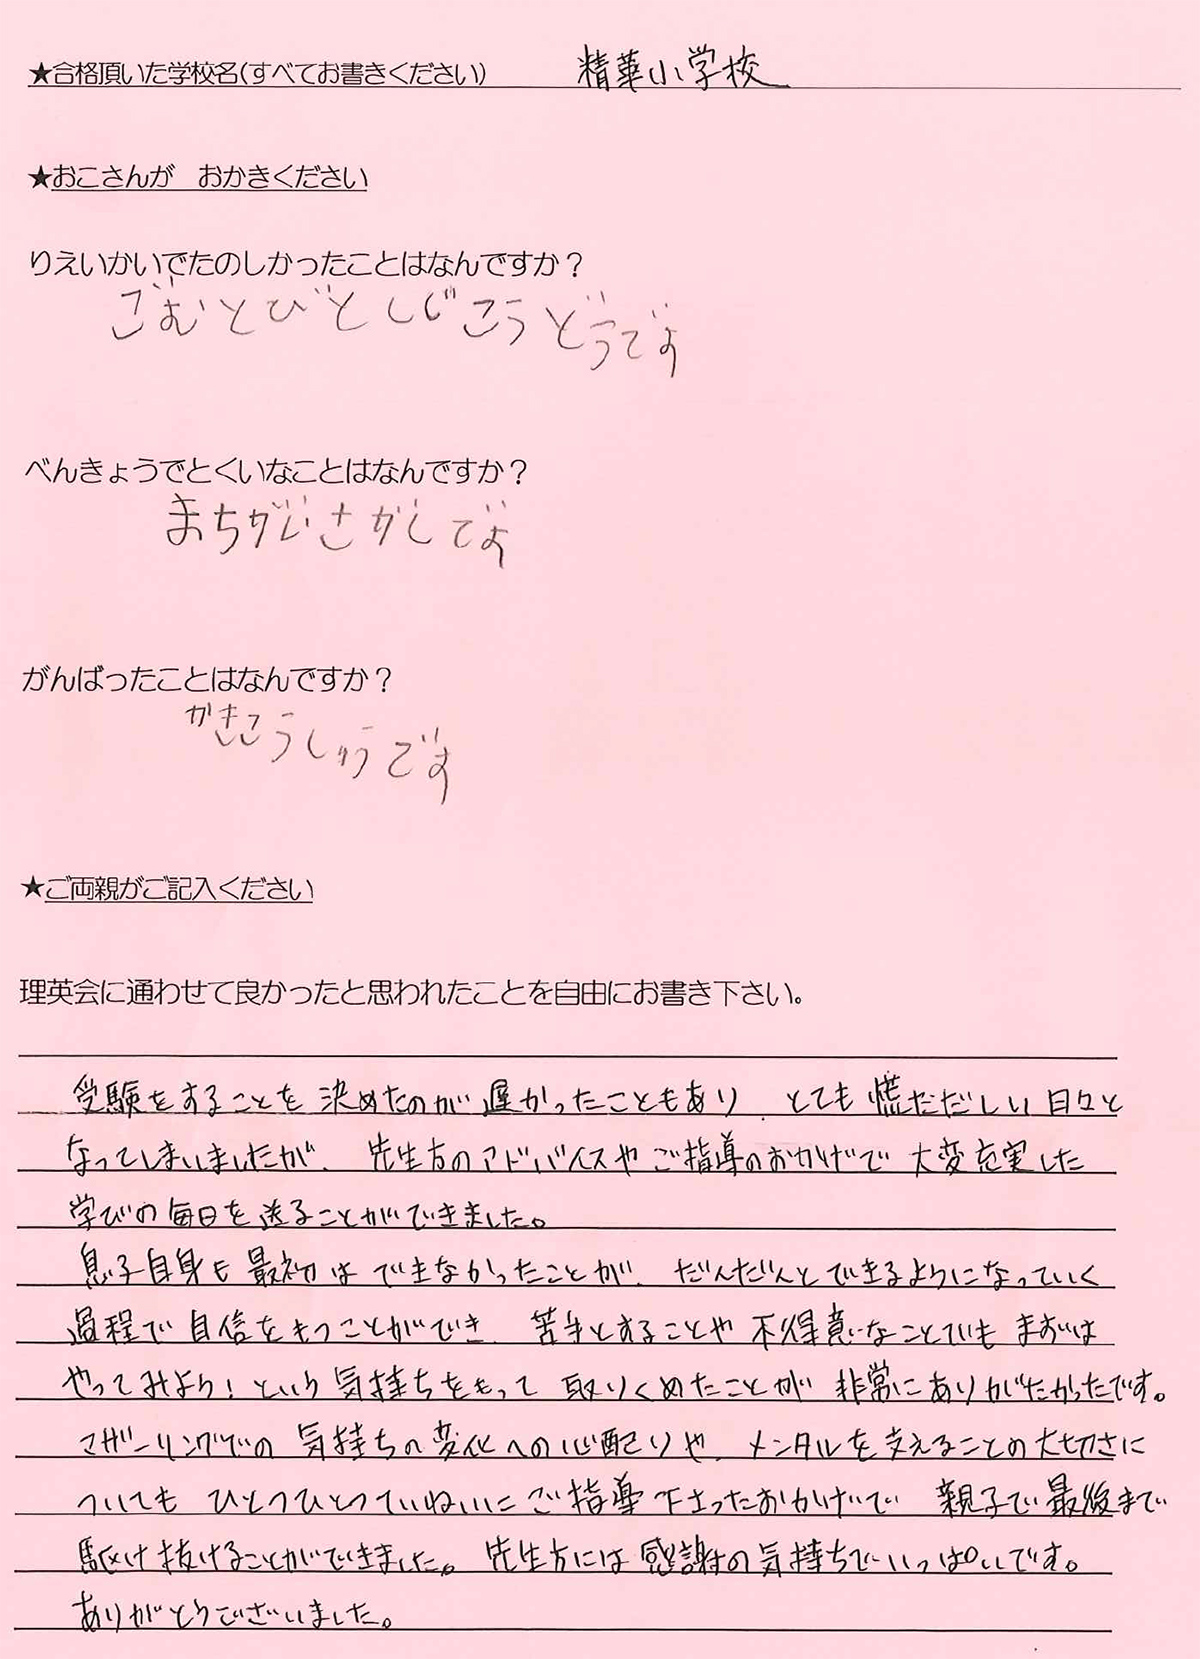 ★合格頂いた学校名(すべてお書きください) 精華小学校
★おこさんが おかきください
りえいかいでたのしかったことはなんですか？
ごむとびとしじこうどうです
べんきょうでとくいなことはなんですか？
まちがいさがしです
がんばったことはなんですか？
かきこうしゅうです
★ご両親がご記入ください
理英会に通わせて良かったと思われたことを自由にお書き下さい。
受験をすることを決めたのが遅かったこともあり、とても慌ただしい日々と
なってしまいましたが、先生方のアドバイスやご指導のおかげで大変充実した
学びの毎日を送ることができました。
息子自身も最初はできなかったことが、だんだんとできるようになっていく
過程で自信をもつことができ、苦手とすることや不得意なことでもまずは
やってみよう!という気持ちをもって取りくめたことが非常にありがたかったです。
マザーリングでの気持ちの変化への心配りや、メンタルを支えることの大切さに
ついてもひとつひとつていねいにご指導下さったおかげで親子で最後まで
駆け抜けることができました。先生方には感謝の気持ちでいっぱいです。
ありがとうございました。